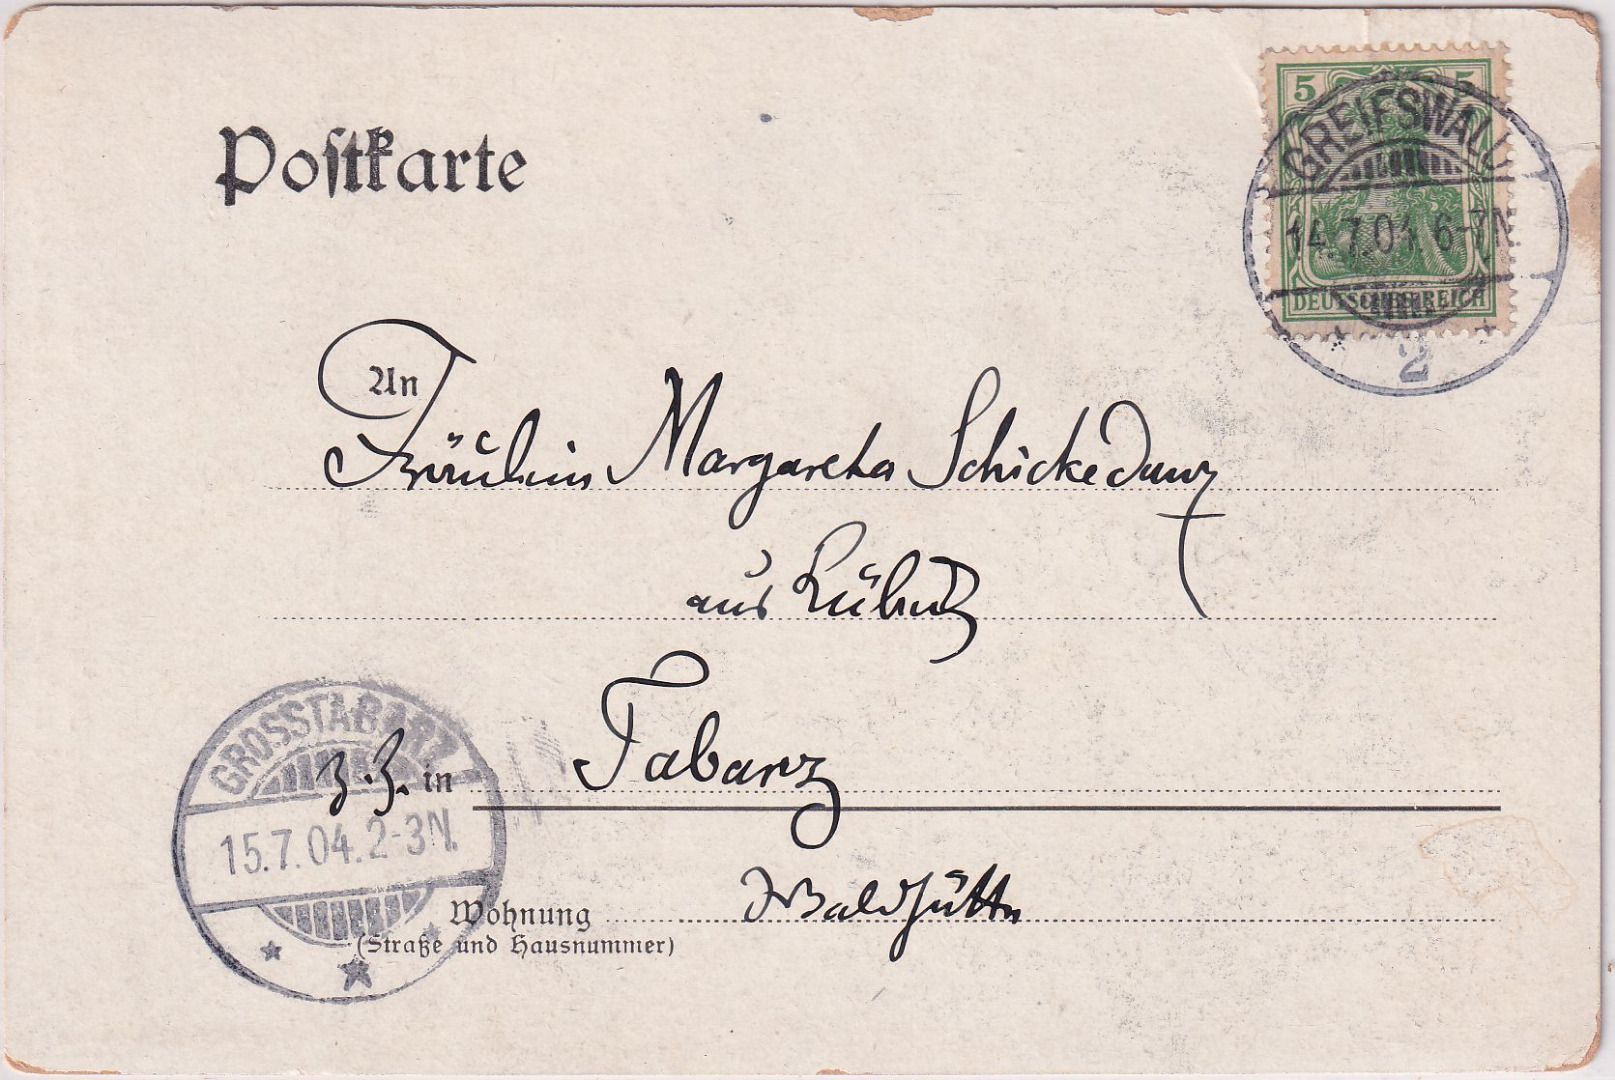 Postkarte
5 5
GREIFSWALD
14.7.04. 6-7N.
DEUTSCHES REICH
2
An
Fräulein Margareta Schickedanz
aus Lübeck
GROSSTABARZ
15.7.04. 2-3N.
z. Z. in Tabarz
Wohnung Waldhütte
(Straße und Hausnummer)